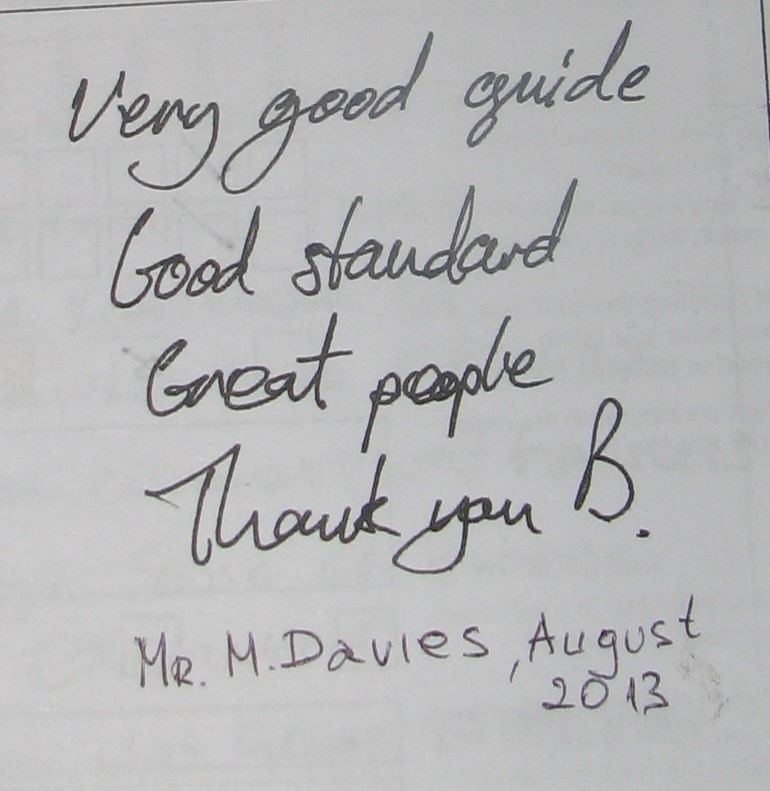 Very good guide
Good standard
Great people
Thank you B.
MR. M. Davies, August
2013